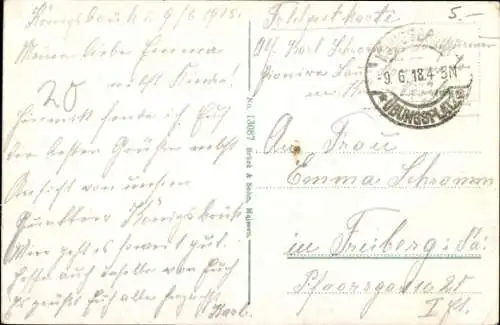 Königsbrück, 9/6 1918.
Meine liebe Emma
nebst Kinder!
20
Hiermit sende ich Euch
die besten Grüßen nebst
Ansicht von unsern
Königsbrück
Mir geht es soweit gut.
Hoffe auch daselbe von Euch
Es grüßt Euch alle herzlichst
Karl.
No. 13087 Brück & Sohn, Meissen.
Feldpostkarte
5.-
Abs. Karl Schramm
Pionier
-9.6.18.4-5N
* ÜBUNGSPLATZ *
An Frau
Emma Schramm
in Freiberg i. Sa.
Pfarrgasse 25
I. Et.